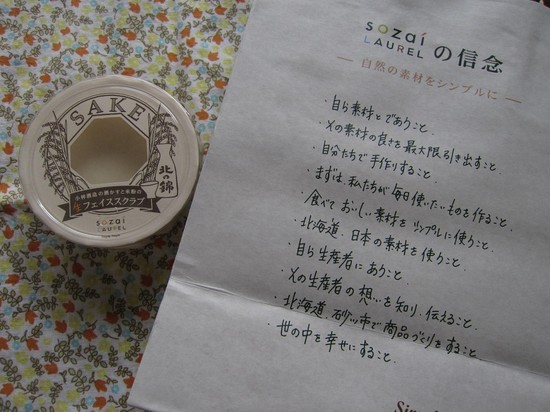 SAKE
北の錦
小林酒造の酒かすと米粉の
生フェイススクラブ
sozai
LAUREL
sozai
LAUREL の信念
自然の素材をシンプルに
・自ら素材とであうこと。
・その素材の良さを最大限引き出すこと。
・自分たちで手作りすること。
・まずは、私たちが毎日使いたいものを作ること。
・食べておいしい素材をシンプルに使うこと。
・北海道、日本の素材を使うこと。
・自ら生産者にあうこと。
・その生産者の想いを知り、伝えること。
・北海道、砂川市で商品づくりをすること
・世の中を幸せにすること。